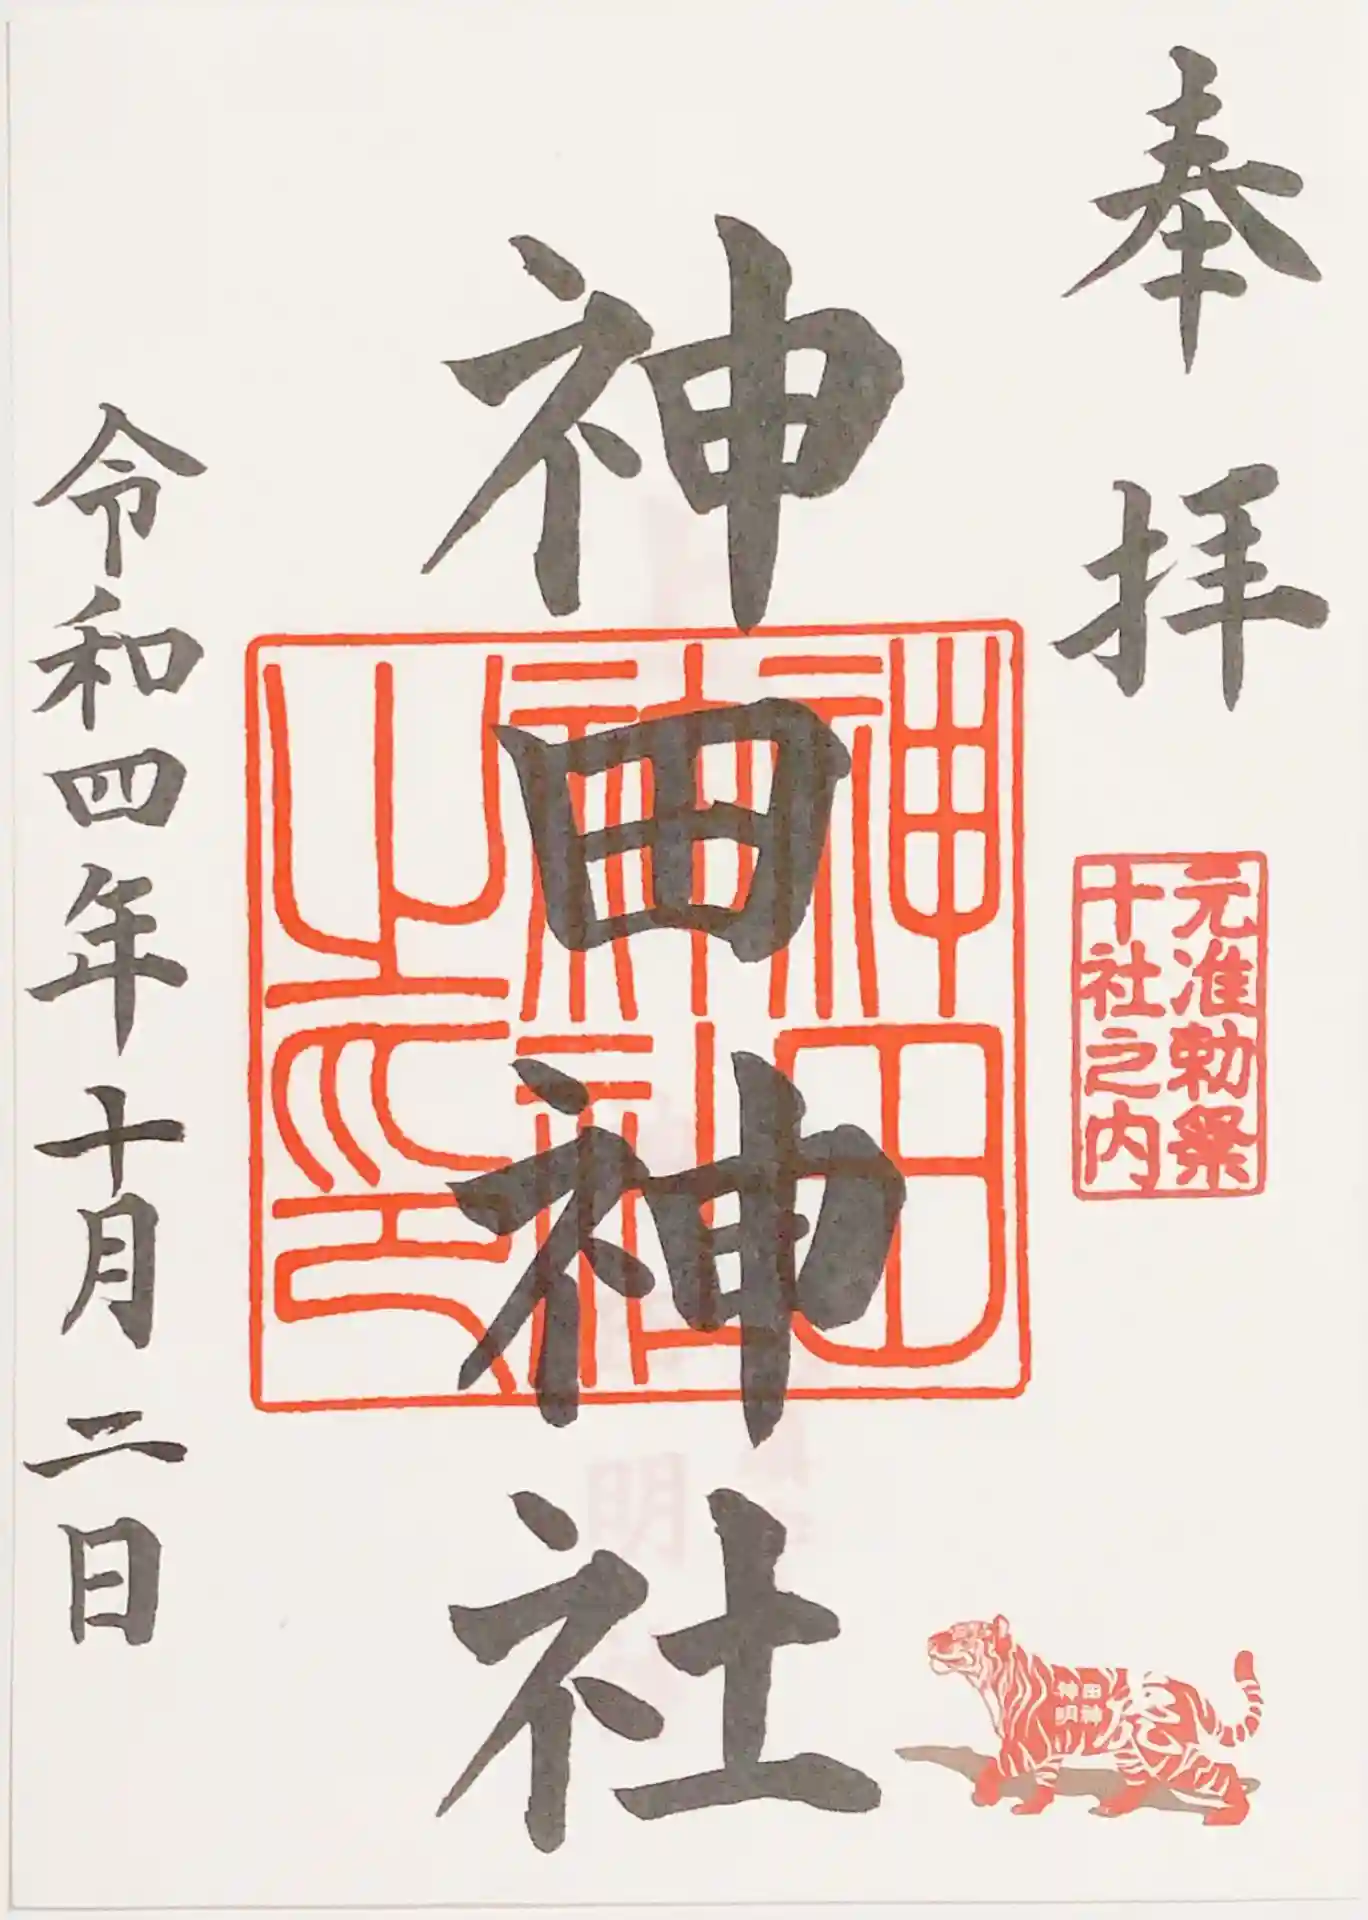 奉拝
元准勅祭
十社之内
神田神社
神田
神社
之印
令和四年十月二日
虎